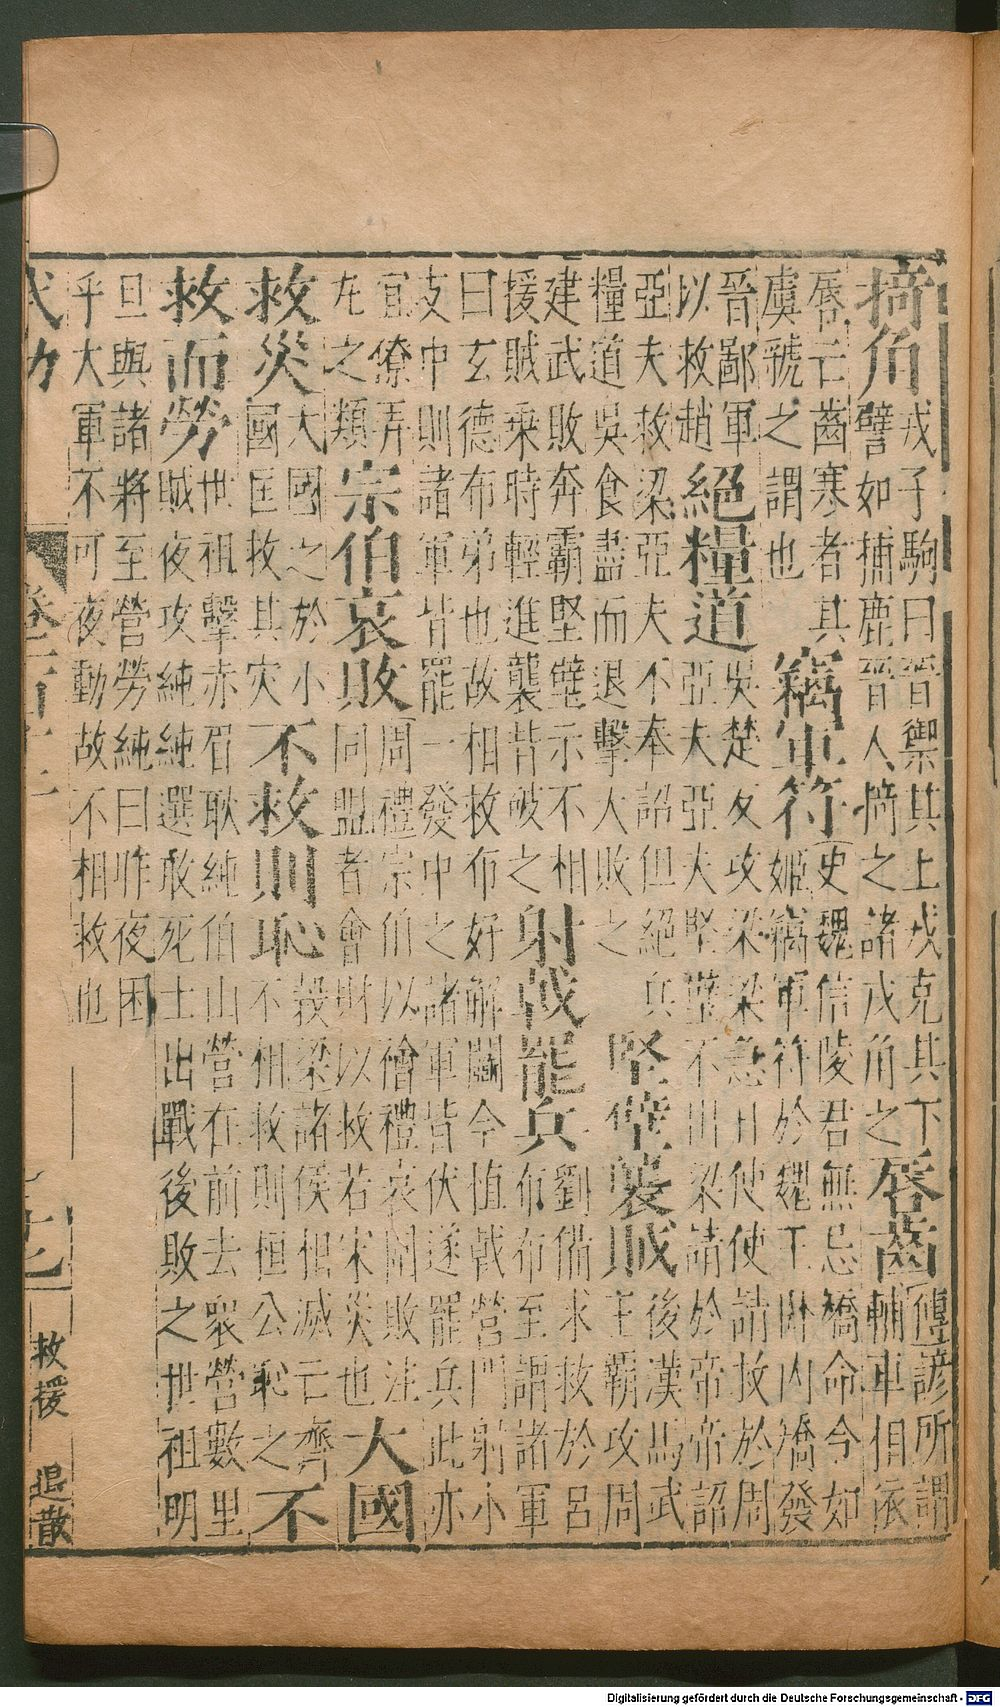 掎角
戎子駒曰晉禦其上戎克其下
譬如捕鹿晉人掎之諸戎角之
唇齒
傳諺所謂
輔車相依
唇亡齒寒者其
虞虢之謂也
竊軍符
史魏信陵君無忌矯命令如
姬竊軍符於魏王臥內矯發
晉鄙軍
以救趙
絕糧道
吳楚反攻梁梁急日使使請救於周
亞夫亞夫堅壁不出梁請於帝帝詔
亞夫救梁亞夫不奉詔但絕兵
糧道吳食盡而退擊大敗之
堅壁襲賊
後漢馬武
王霸攻周
建武敗奔霸堅壁示不相
援賊乘時輕進襲背破之
射戟罷兵
劉備求救於呂
布布至謂諸軍
曰玄德布弟也故相救布好解鬭今植戟營門射小
支中則諸軍皆罷一發中之諸軍皆伏遂罷兵此亦
宜僚弄
九之類
宗伯哀敗
周禮宗伯以禬禮哀圍敗注
同盟者會財以救若宋災也
大國
救災
大國之於小
國匡救其灾
不救則恥
穀梁諸侯相滅亡齊
不相救則恒公恥之
不
救而勞
世祖擊赤眉耿純伯山營在前去衆營數里
賊夜攻純純選敢死士出戰後敗之世祖明
旦與諸將至營勞純曰昨夜困
乎大軍不可夜動故不相救也
武功
救援
退散
Digitalisierung gefördert durch die Deutsche Forschungsgemeinschaft - DFG